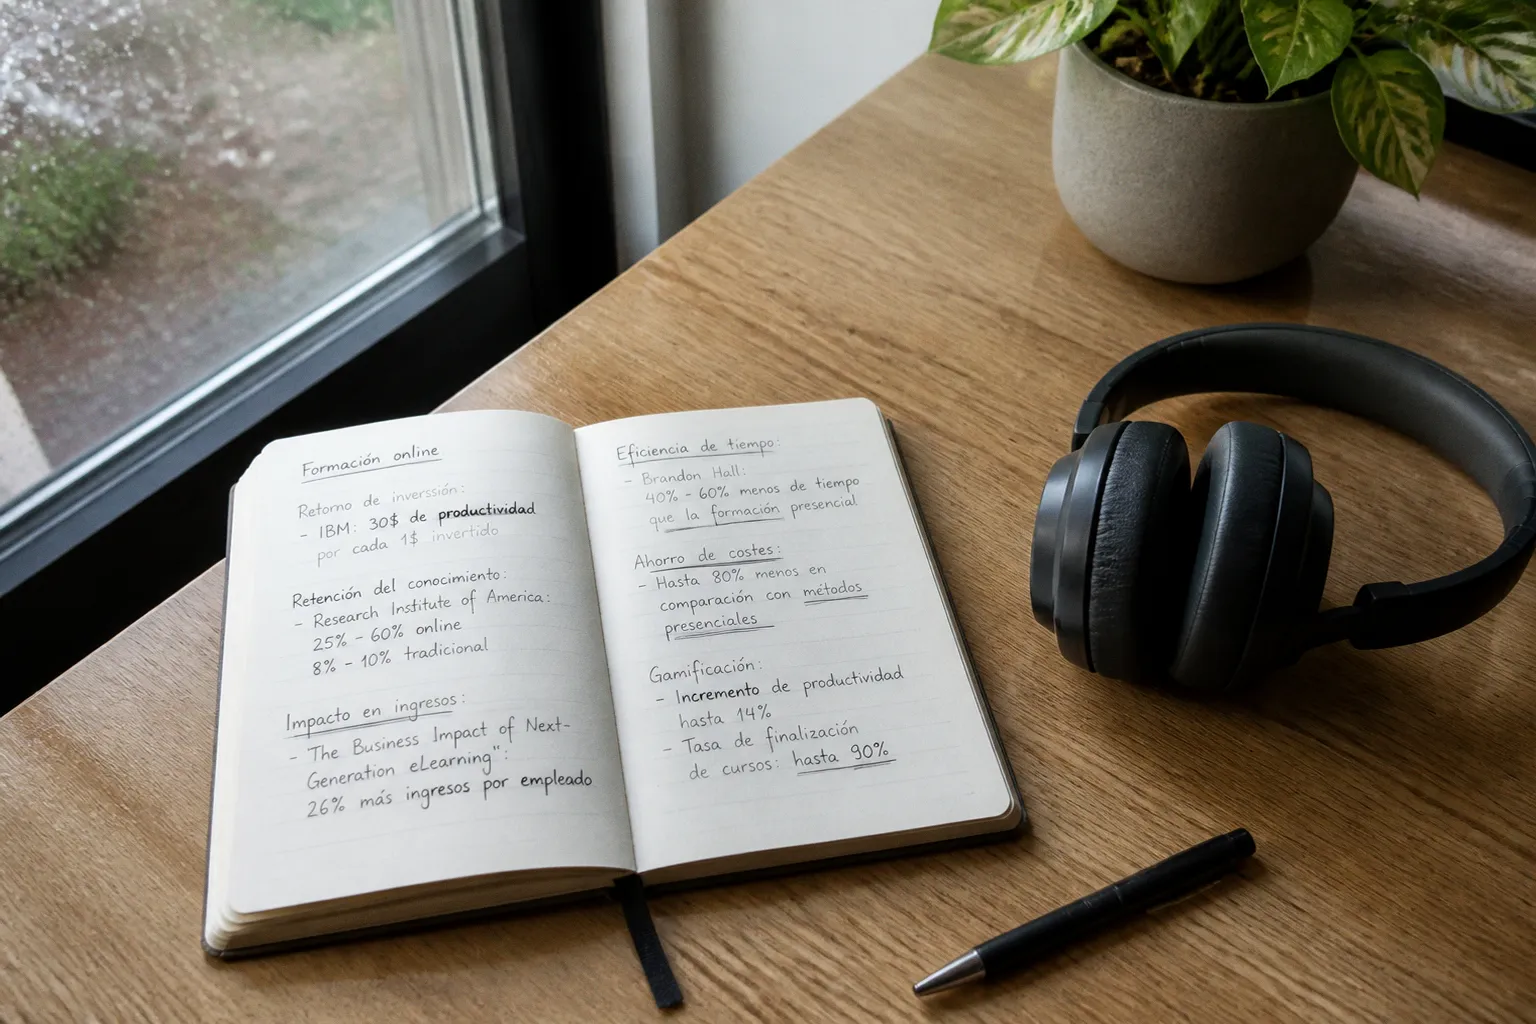 Formación online
Retorno de inverssión:
- IBM: 30$ de productividad
por cada 1$ invertido
Retención del conocimiento:
- Research Institute of America:
25% - 60% online
8% - 10% tradicional
Impacto en ingresos:
- The Business Impact of Next-
Generation eLearning":
26% más ingresos por empleado
Eficiencia de tiempo:
- Brandon Hall:
40% - 60% menos de tiempo
que la formación presencial
Ahorro de costes:
- Hasta 80% menos en
comparación con métodos
presenciales
Gamificación:
- Incremento de productividad
hasta 14%
- Tasa de finalización
de cursos: hasta 90%